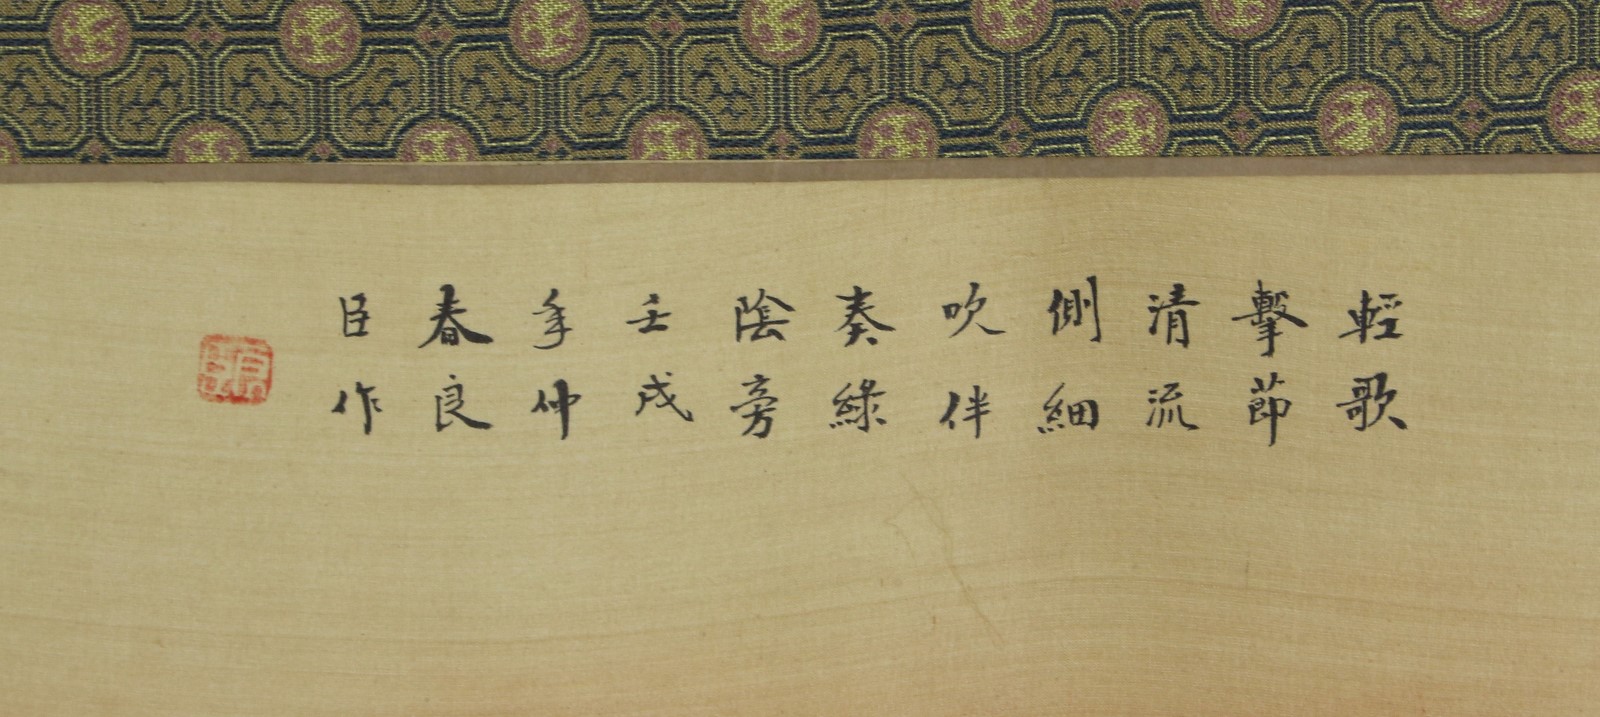 輕歌
擊節
清流
側細
吹伴
奏綠
陰旁
壬戌
年仲
春良
臣作